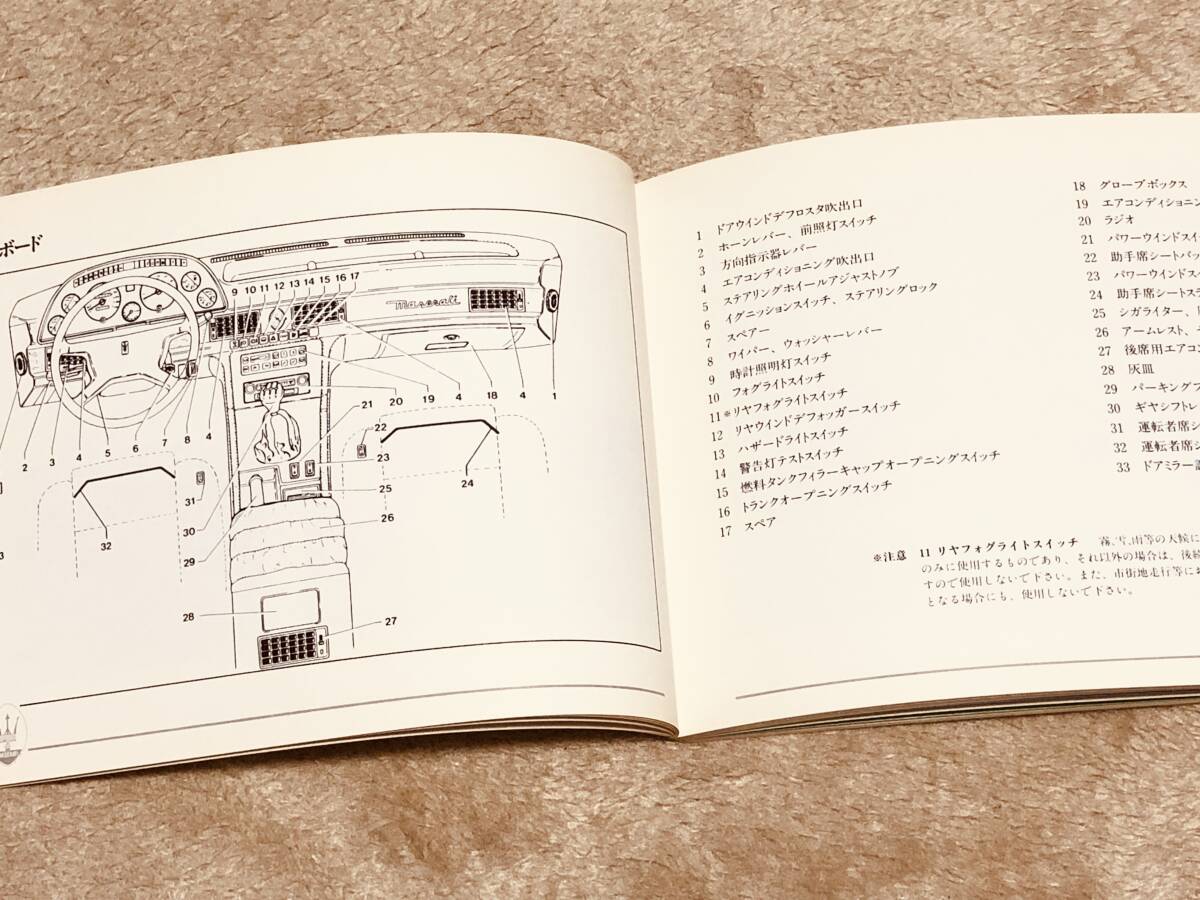 ボード
9 10 11 12 13 14 15 16 17
Maserati
2 3 4 5 6 7 8 4
21 20 19 4 18 4 1
22
23
24
25
26
31
30
29
32
3
28
27
1 ドアウインドデフロスタ吹出口
2 ホーンレバー、前照灯スイッチ
3 方向指示器レバー
4 エアコンディショニング吹出口
5 ステアリングホイールアジャストノブ
6 イグニッションスイッチ、ステアリングロック
7 スペアー
8 ワイパー、ウォッシャーレバー
9 時計照明灯スイッチ
10 フォグライトスイッチ
11※リヤフォグライトスイッチ
12 リヤウインドデフォッガースイッチ
13 ハザードライトスイッチ
14 警告灯テストスイッチ
15 燃料タンクフィラーキャップオープニングスイッチ
16 トランクオープニングスイッチ
17 スペア
18 グローブボックス
19 エアコンディショニン
20 ラジオ
21 パワーウインドスイ
22 助手席シートバッ
23 パワーウインドス
24 助手席シートスラ
25 シガライター、
26 アームレスト、
27 後席用エアコン
28 灰皿
29 パーキングブ
30 ギヤシフトレ
31 運転者席シ
32 運転者席シ
33 ドアミラー
※注意 11 リヤフォグライトスイッチ 霧、雪、雨等の天候に
のみに使用するものであり、それ以外の場合は、後続
すので使用しないで下さい。また、市街地走行等にお
となる場合にも、使用しないで下さい。